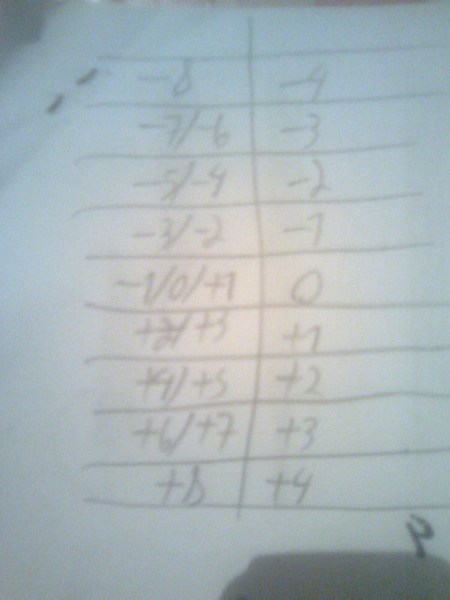 -8 -4
-7/-6 -3
-5/-4 -2
-3/-2 -1
-1/0/+1 0
+2/+3 +1
+4/+5 +2
+6/+7 +3
+8 +4